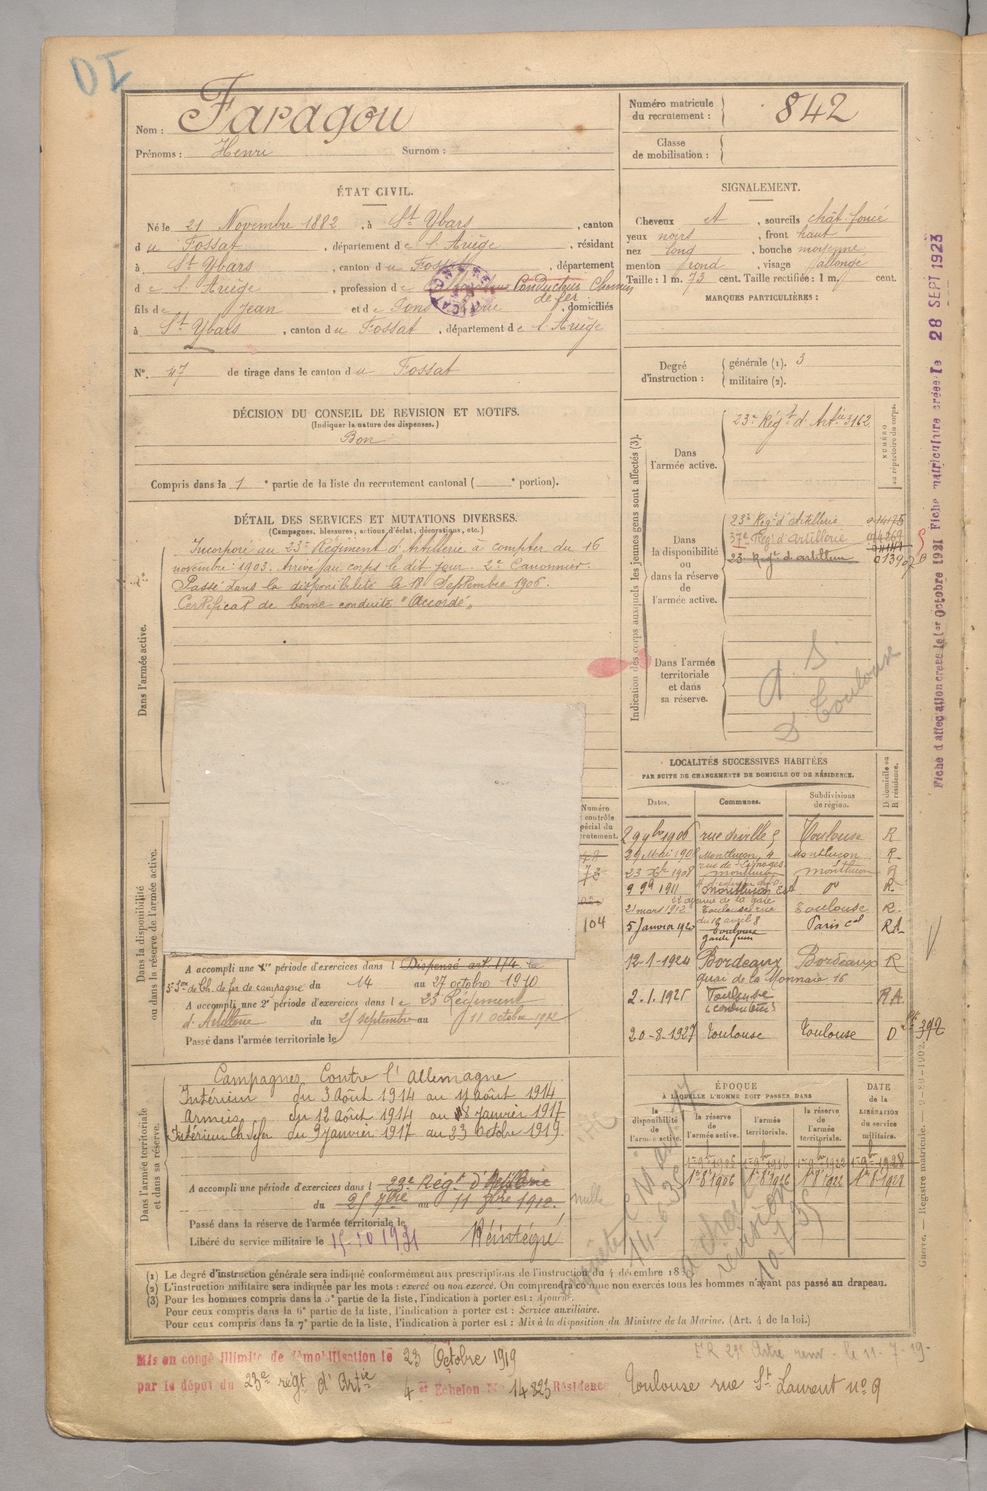 Nom : Faragou
Prénoms : Henri Surnom :
Numéro matricule du recrutement : 842
Classe de mobilisation :
ÉTAT CIVIL.
Né le 21 Novembre 1882, à St Ybars, canton
du Fossat, département de l'Ariège, résidant
à St Ybars, canton du Fossat, département
de l'Ariège, profession de Conducteur Chemin de fer
fils de Jean et de, domiciliés
à St Ybars, canton du Fossat, département de l'Ariège
No. 47 de tirage dans le canton du Fossat
DÉCISION DU CONSEIL DE REVISION ET MOTIFS.
(Indiquer la nature des dispenses.)
Bon
Compris dans la 1e partie de la liste du recrutement cantonal ( e portion).
DÉTAIL DES SERVICES ET MUTATIONS DIVERSES.
(Campagnes, blessures, actions d'éclat, décorations, etc.)
Incorporé au 23e Régiment d'Artillerie à compter du 16
novembre 1903. Arrivé au corps le dit jour. 2e Canonnier.
Passé dans la disponibilité le 18 Septembre 1906.
Certificat de bonne conduite "Accordé"
Dans l'armée active.
Dans la disponibilité ou dans la réserve de l'armée active.
104
A accompli une 1re période d'exercices dans l Dispensé art. 114 la
5 Son de Ch. de fer de campagne du 14 au 27 octobre 1910
A accompli une 2e période d'exercices dans le 23 Régiment
d'Artillerie du 25 septembre au 11 octobre 1912
Passé dans l'armée territoriale le
Dans l'armée territoriale et dans sa réserve.
Campagnes Contre l'Allemagne
Intérieur du 3 Août 1914 au 11 août 1914
Armées du 12 Août 1914 au 8 Janvier 1917
Intérieur Ch de fer du 9 Janvier 1917 au 23 Octobre 1919
A accompli une période d'exercices dans l 23e Régt d'Artillerie
du 25 7bre au 11 1912.
Passé dans la réserve de l'armée territoriale le
Libéré du service militaire le 15-10 1931 Réintégré
SIGNALEMENT.
Cheveux, sourcils chât. foncé
yeux noirs, front haut
nez long, bouche moyenne
menton rond, visage allongé
Taille : 1 m. 73 cent. Taille rectifiée : 1 m. cent.
MARQUES PARTICULIÈRES :
Degré d'instruction : générale (1). 3
militaire (2).
Indication des corps auxquels les jeunes gens sont affectés (3).
NUMÉRO au répertoire du corps.
Dans l'armée active.
23e Régt d'Artie 3162
Dans la disponibilité ou dans la réserve de l'armée active.
23e Régt d'Artillerie
37e Régt d'Artillerie
23 Régt d'artillerie
Dans l'armée territoriale et dans sa réserve.
Toulouse
LOCALITÉS SUCCESSIVES HABITÉES
PAR SUITE DE CHANGEMENTS DE DOMICILE OU DE RÉSIDENCE.
Dates. Communes. Subdivisions de région. D domicile ou R résidence.
2 9bre 1906 Toulouse R
29 Mai 1908 Montluçon, 4 rue de Limoges Montluçon R
23 1908 Montluçon R
9 1911 Montluçon R.
21 mars 1912 Toulouse rue du 10 avril 8 Toulouse R.
5 Janvier 1920 Toulouse Paris cal RA
12-1-1924 Bordeaux quai de la Monnaie 16 Bordeaux R
2.1.1925 Toulouse RA
20-8-1927 Toulouse Toulouse D 392
ÉPOQUE
À LAQUELLE L'HOMME DOIT PASSER DANS
la disponibilité de l'armée active. la réserve de l'armée active. l'armée territoriale. la réserve de l'armée territoriale. DATE de la LIBÉRATION du service militaire.
Fiche d'affectation créée le 1er Octobre 1921 Fiche matriculaire créée le 28 SEPT 1923
Guerre. Registre matricule.
(1) Le degré d'instruction générale sera indiqué conformément aux prescriptions de l'instruction du 4 décembre 18
(2) L'instruction militaire sera indiquée par les mots : exercé ou non exercé. On comprendra comme non exercés tous les hommes n'ayant pas passé au drapeau.
(3) Pour les hommes compris dans la 5e partie de la liste, l'indication à porter est : Ajourné.
Pour ceux compris dans la 6e partie de la liste, l'indication à porter est : Service auxiliaire.
Pour ceux compris dans la 7e partie de la liste, l'indication à porter est : Mis à la disposition du Ministre de la Marine. (Art. 4 de la loi.)
Mis en congé illimité de démobilisation le 23 Octobre 1919
par le dépôt du 23e régt d'Artie 4e Echelon No 14823 Résidence Toulouse rue St Laurent no 9